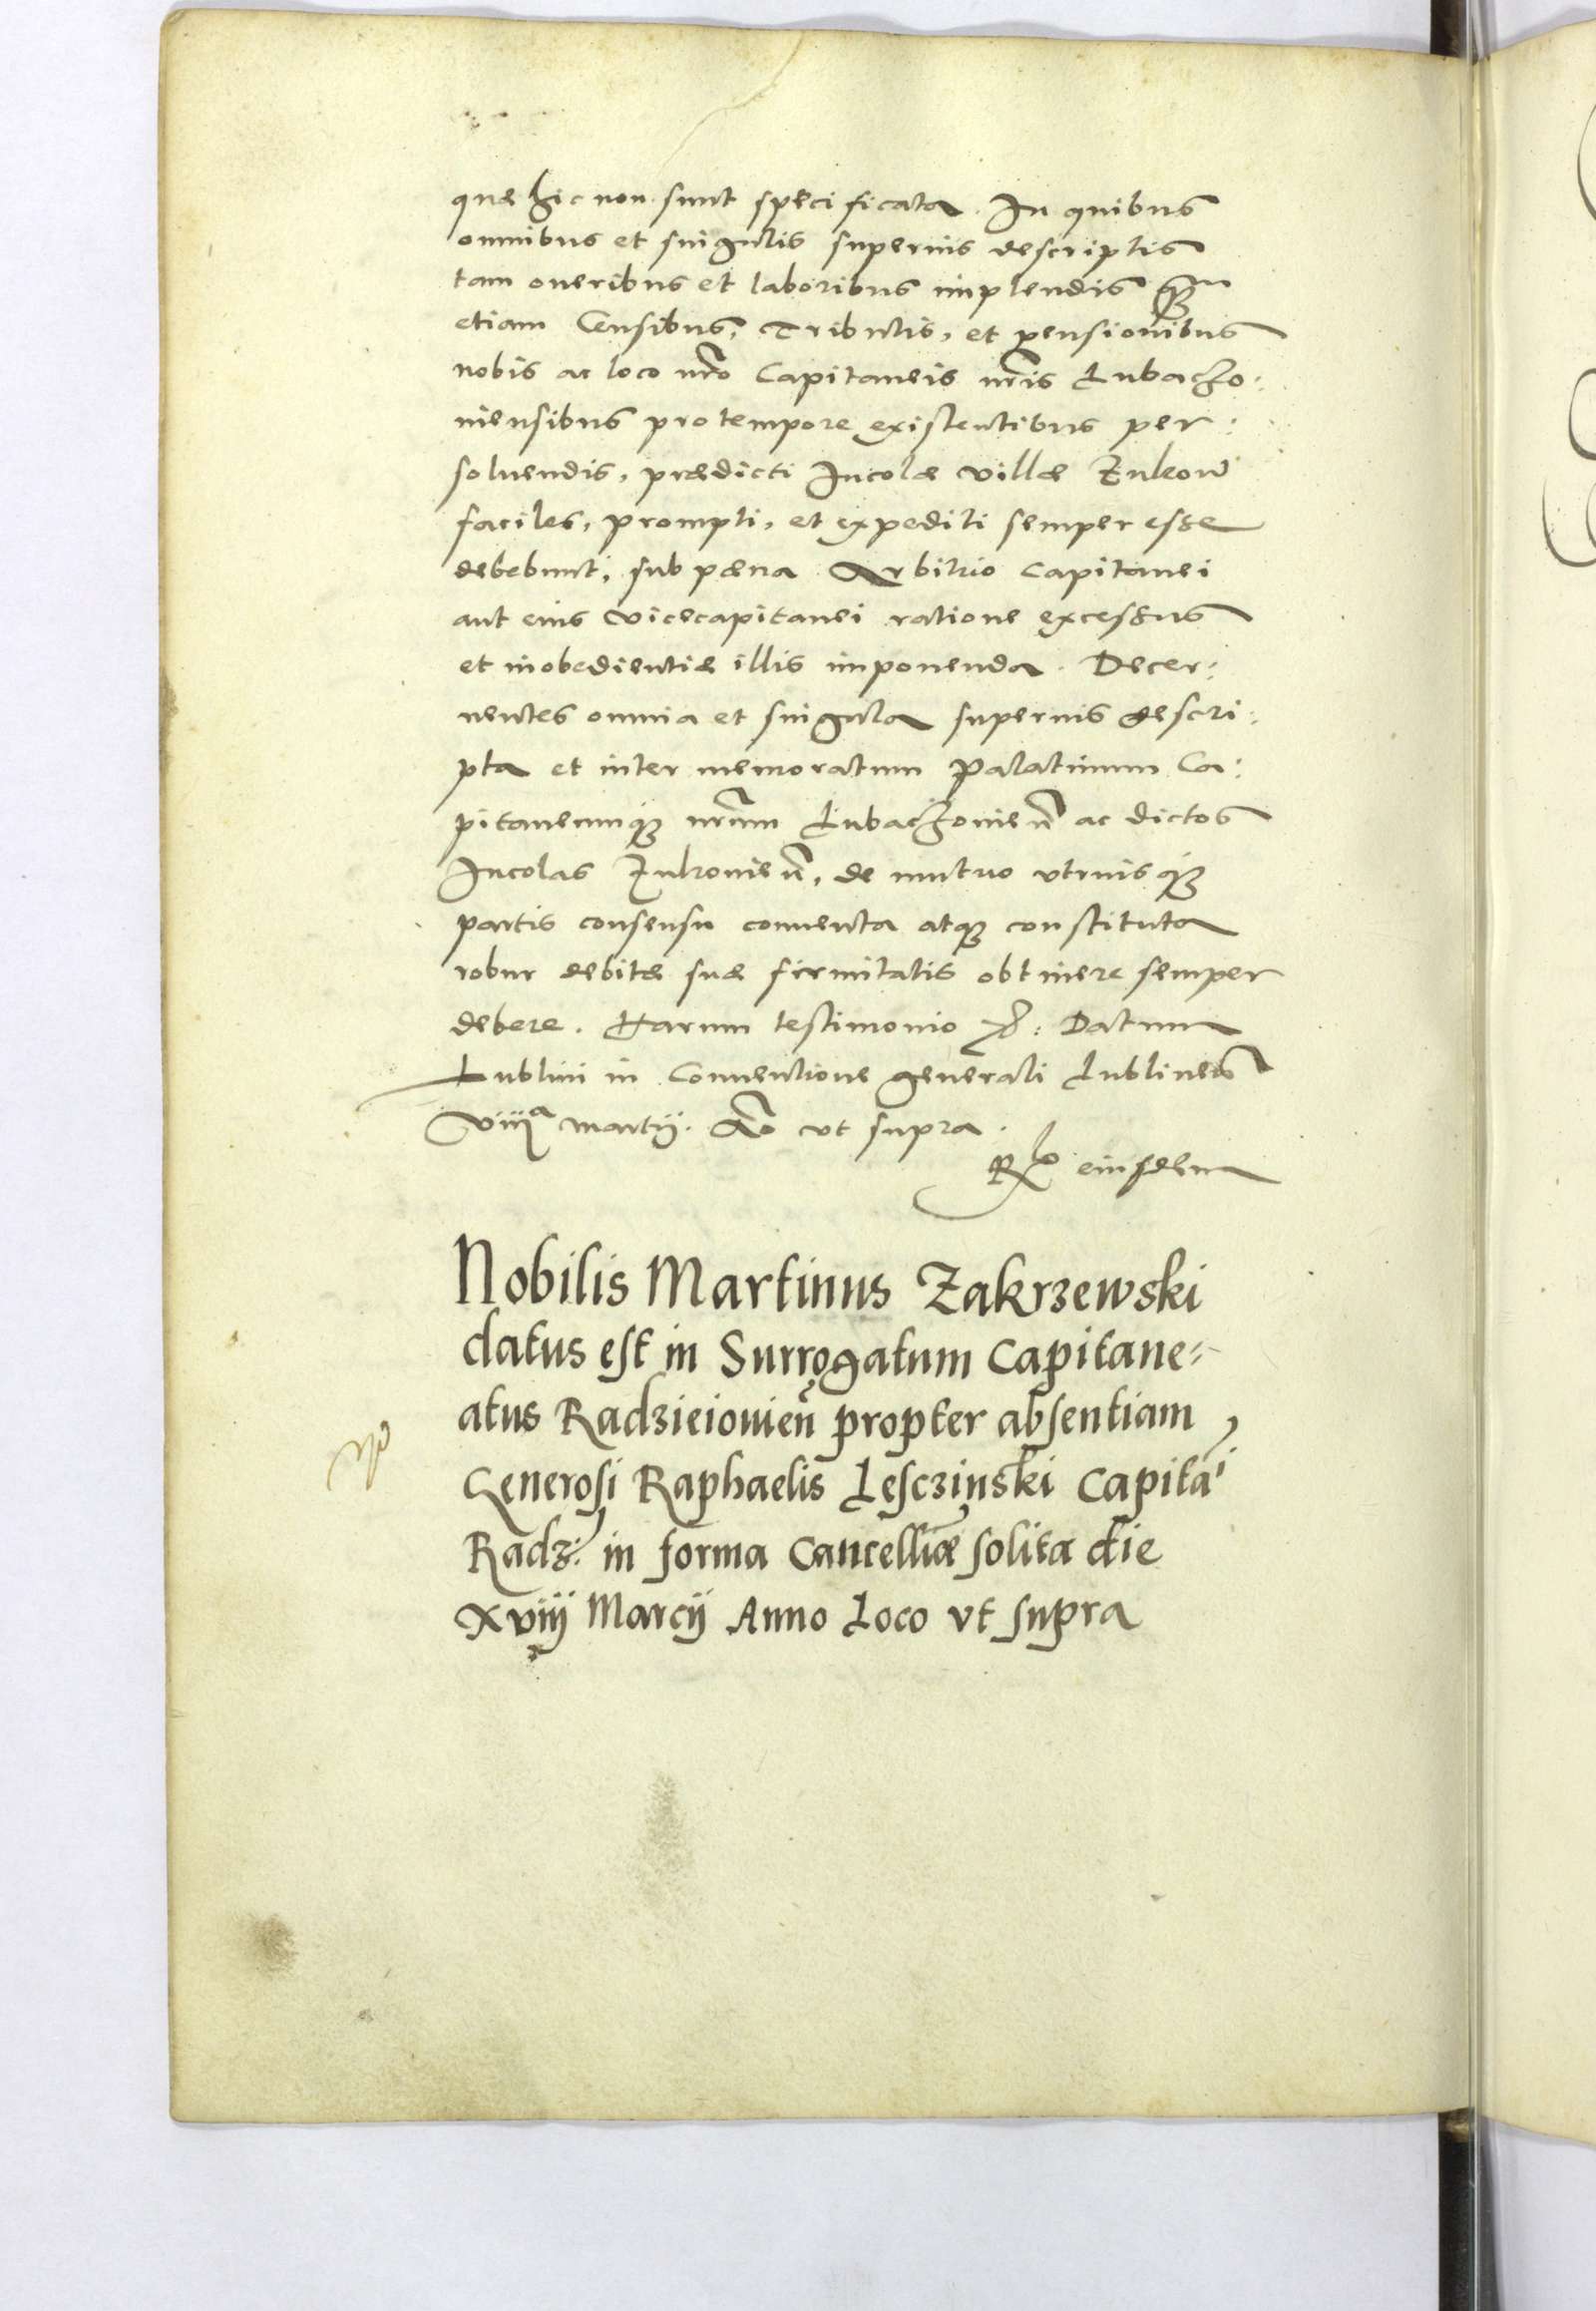 quæ hic non sunt specificata. In quibus
omnibus et singulis superius descriptis
tam oneribus et laboribus implendis q̃ȝ
etiam Censibus, Tributis, et pensionibus
nobis ac loco nr̃o Capitaneis nr̃is Lubaczo:
niensibus pro tempore existentibus per:
soluendis, prædicti Incolæ villæ Zukow
faciles, prompti, et expediti semper esse
debebunt, sub pæna Arbitrio Capitanei
aut eius Vicecapitanei ratione excessus
et inobedientiæ illis imponenda. Decer:
nentes omnia et singula superius descri:
pta et inter memoratum Palatinum Ca:
pitaneumqȝ nr̃um Lubaczonien̄ ac dictos
Incolas Zukonien̄, de mutuo utriusqȝ
partis consensu conuenta atqȝ constituta
robur debitæ suæ firmitatis obtinere semper
debere. Harum testimonio : Datum
Lublini in Conuentione generali Lublinen̄
viiiᵃ martij. Aõ ut supra.
Rlo eiusdem
Nobilis Martinus Zakrzewski
datus est in Surrogatum Capitane=
atus Radzieiouien̄ propter absentiam
Generosi Raphaelis Lesczinski Capitāi
Radz: in forma Cancelliæ solita die
Xviij Marcij Anno Loco vt supra